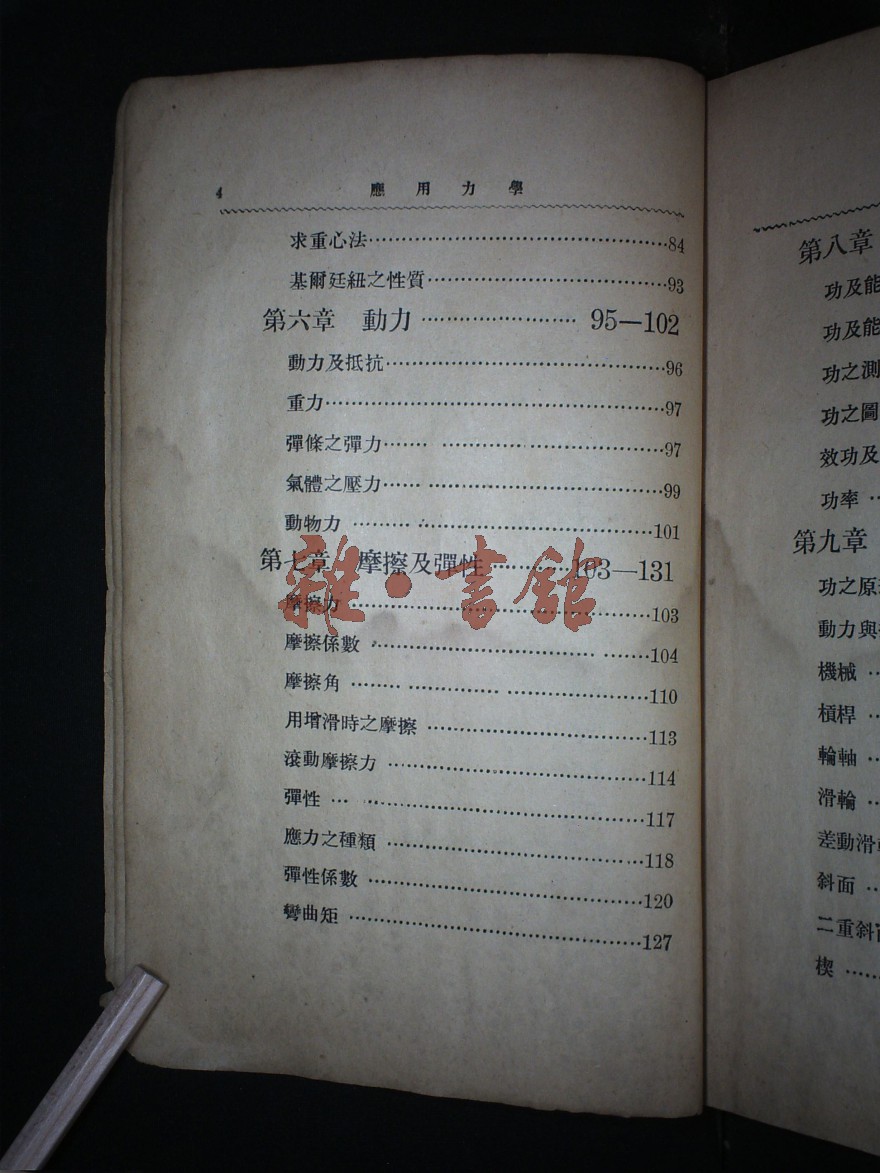 4 應用力學
求重心法……84
基爾廷紐之性質……93
第六章 動力……95—102
動力及抵抗……96
重力……97
彈條之彈力……97
氣體之壓力……99
動物力……101
第七章 摩擦及彈性……103—131
摩擦力……103
摩擦係數……104
摩擦角……110
用增滑時之摩擦……113
滾動摩擦力……114
彈性……117
應力之種類……118
彈性係數……120
彎曲矩……127
雜·書館
第八章
功及能
功及能
功之測
功之圖
效功及
功率…
第九章
功之原
動力與
機械…
槓桿…
輪軸…
滑輪…
差動滑
斜面…
二重斜
楔……